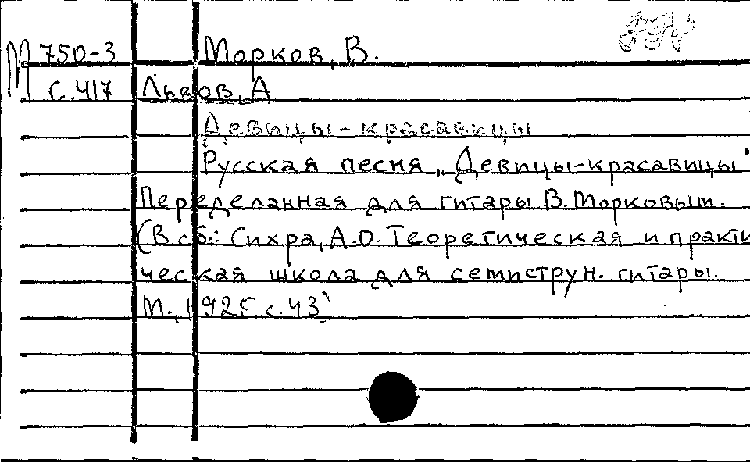 М 750-3 Морков, В.
с. 417 Львов, А
Девицы-красавицы
Русская песня „Девицы-красавицы"
Переделанная для гитары В. Морковым.
(В сб.: Сихра, А.О. Теоретическая и практи
ческая школа для семиструн. гитары.
М., с. 43